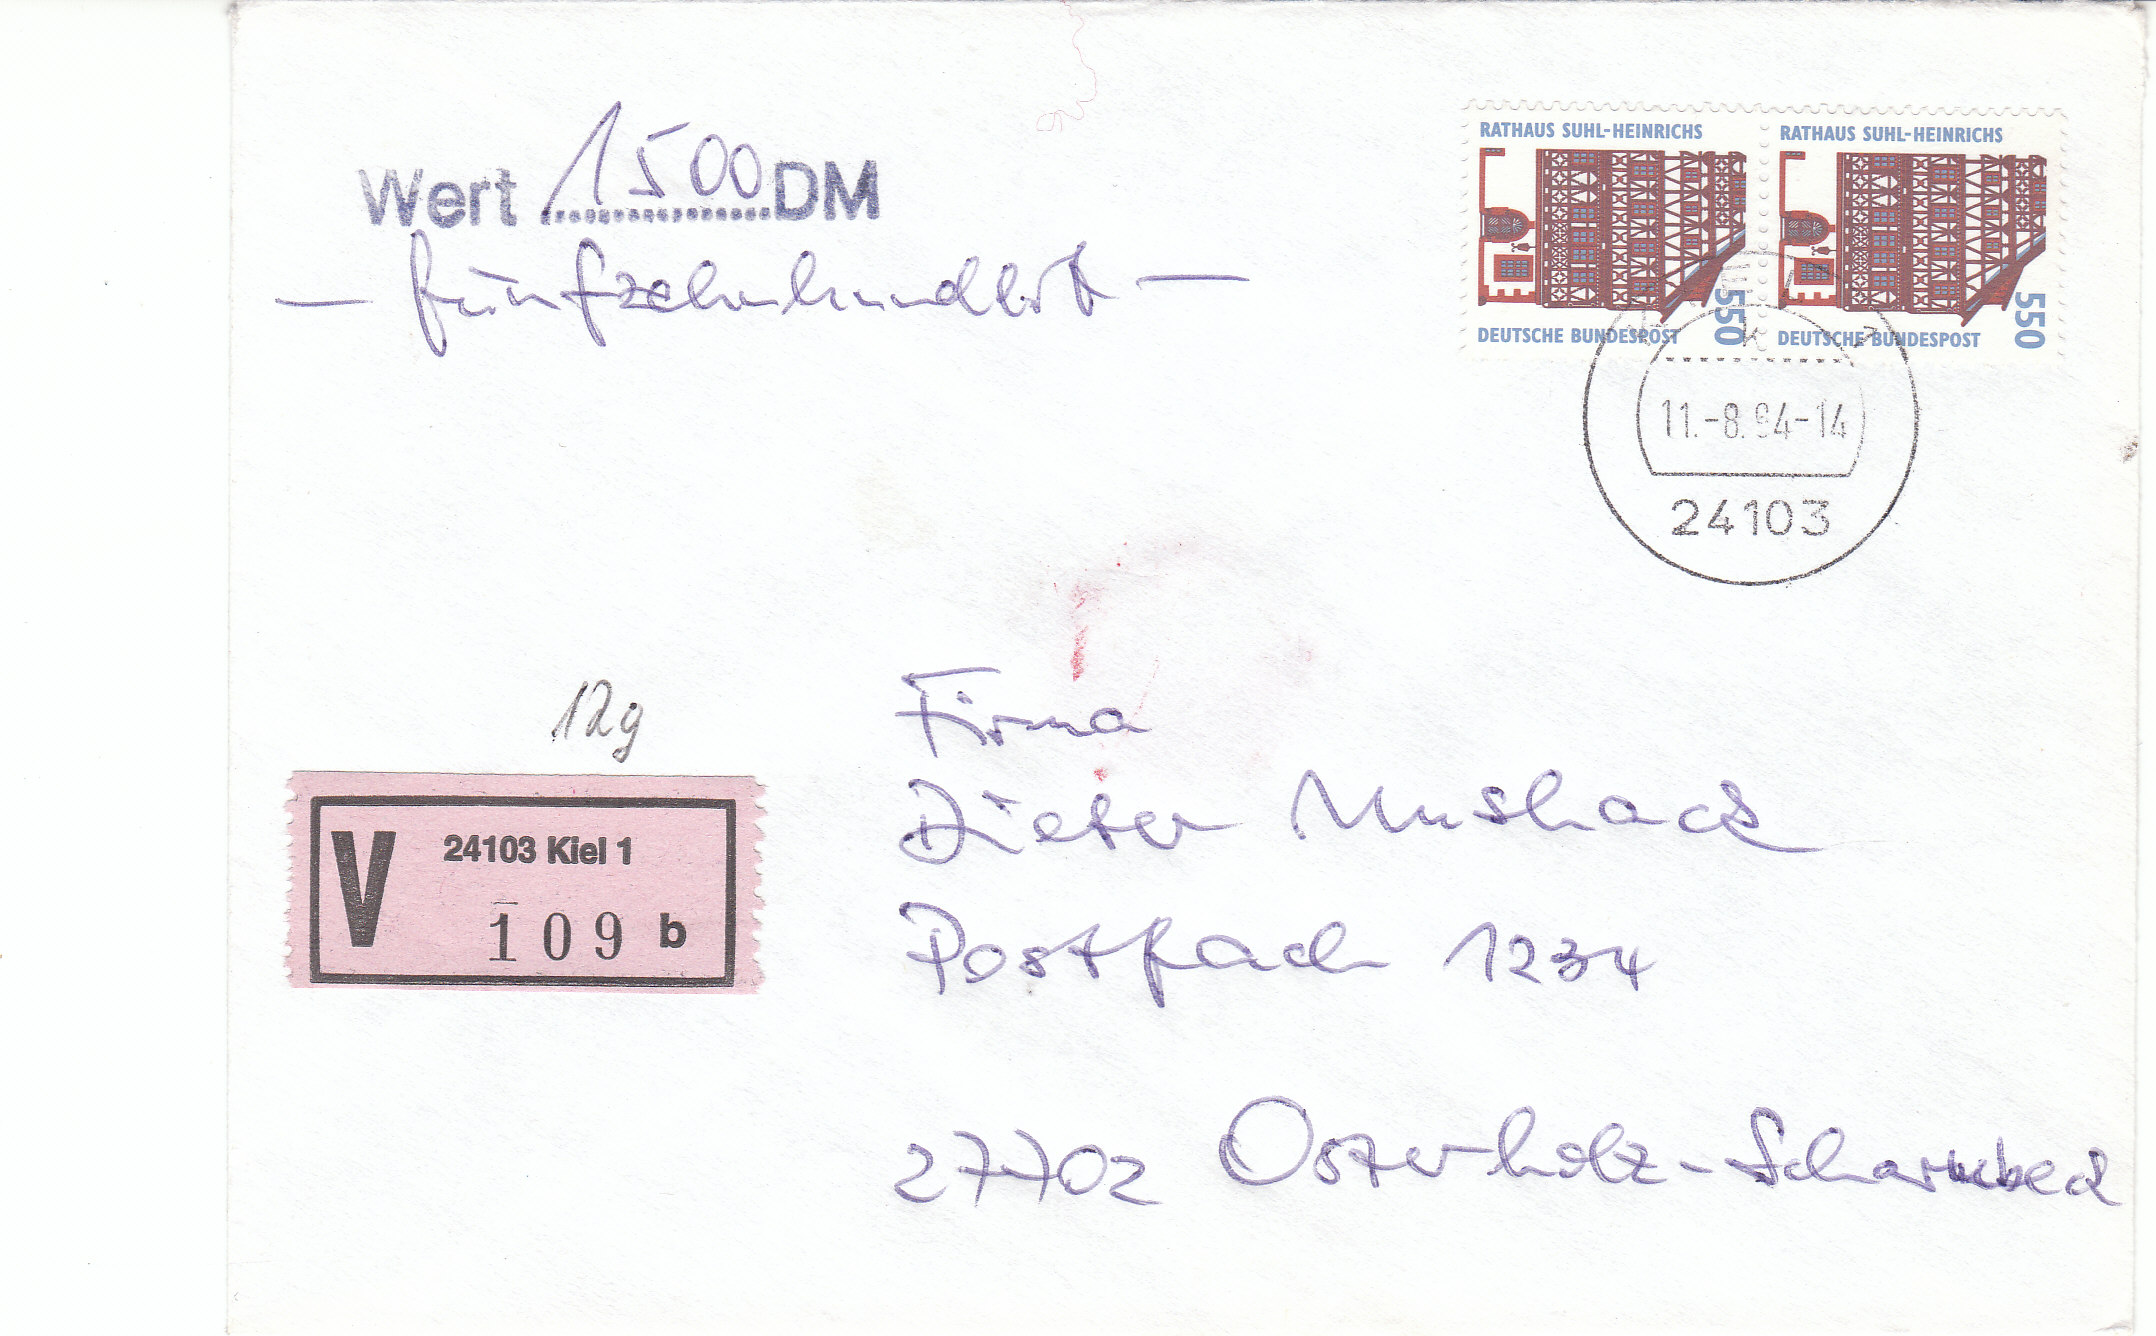 Wert 1500 DM
– fünfzehnhundert –
RATHAUS SUHL-HEINRICHS
550
DEUTSCHE BUNDESPOST
RATHAUS SUHL-HEINRICHS
550
DEUTSCHE BUNDESPOST
11.-8.94-14
24103
12g
V 24103 Kiel 1
109 b
Firma
Dieter Mushack
Postfach 1234
27702 Osterholz-Scharmbeck